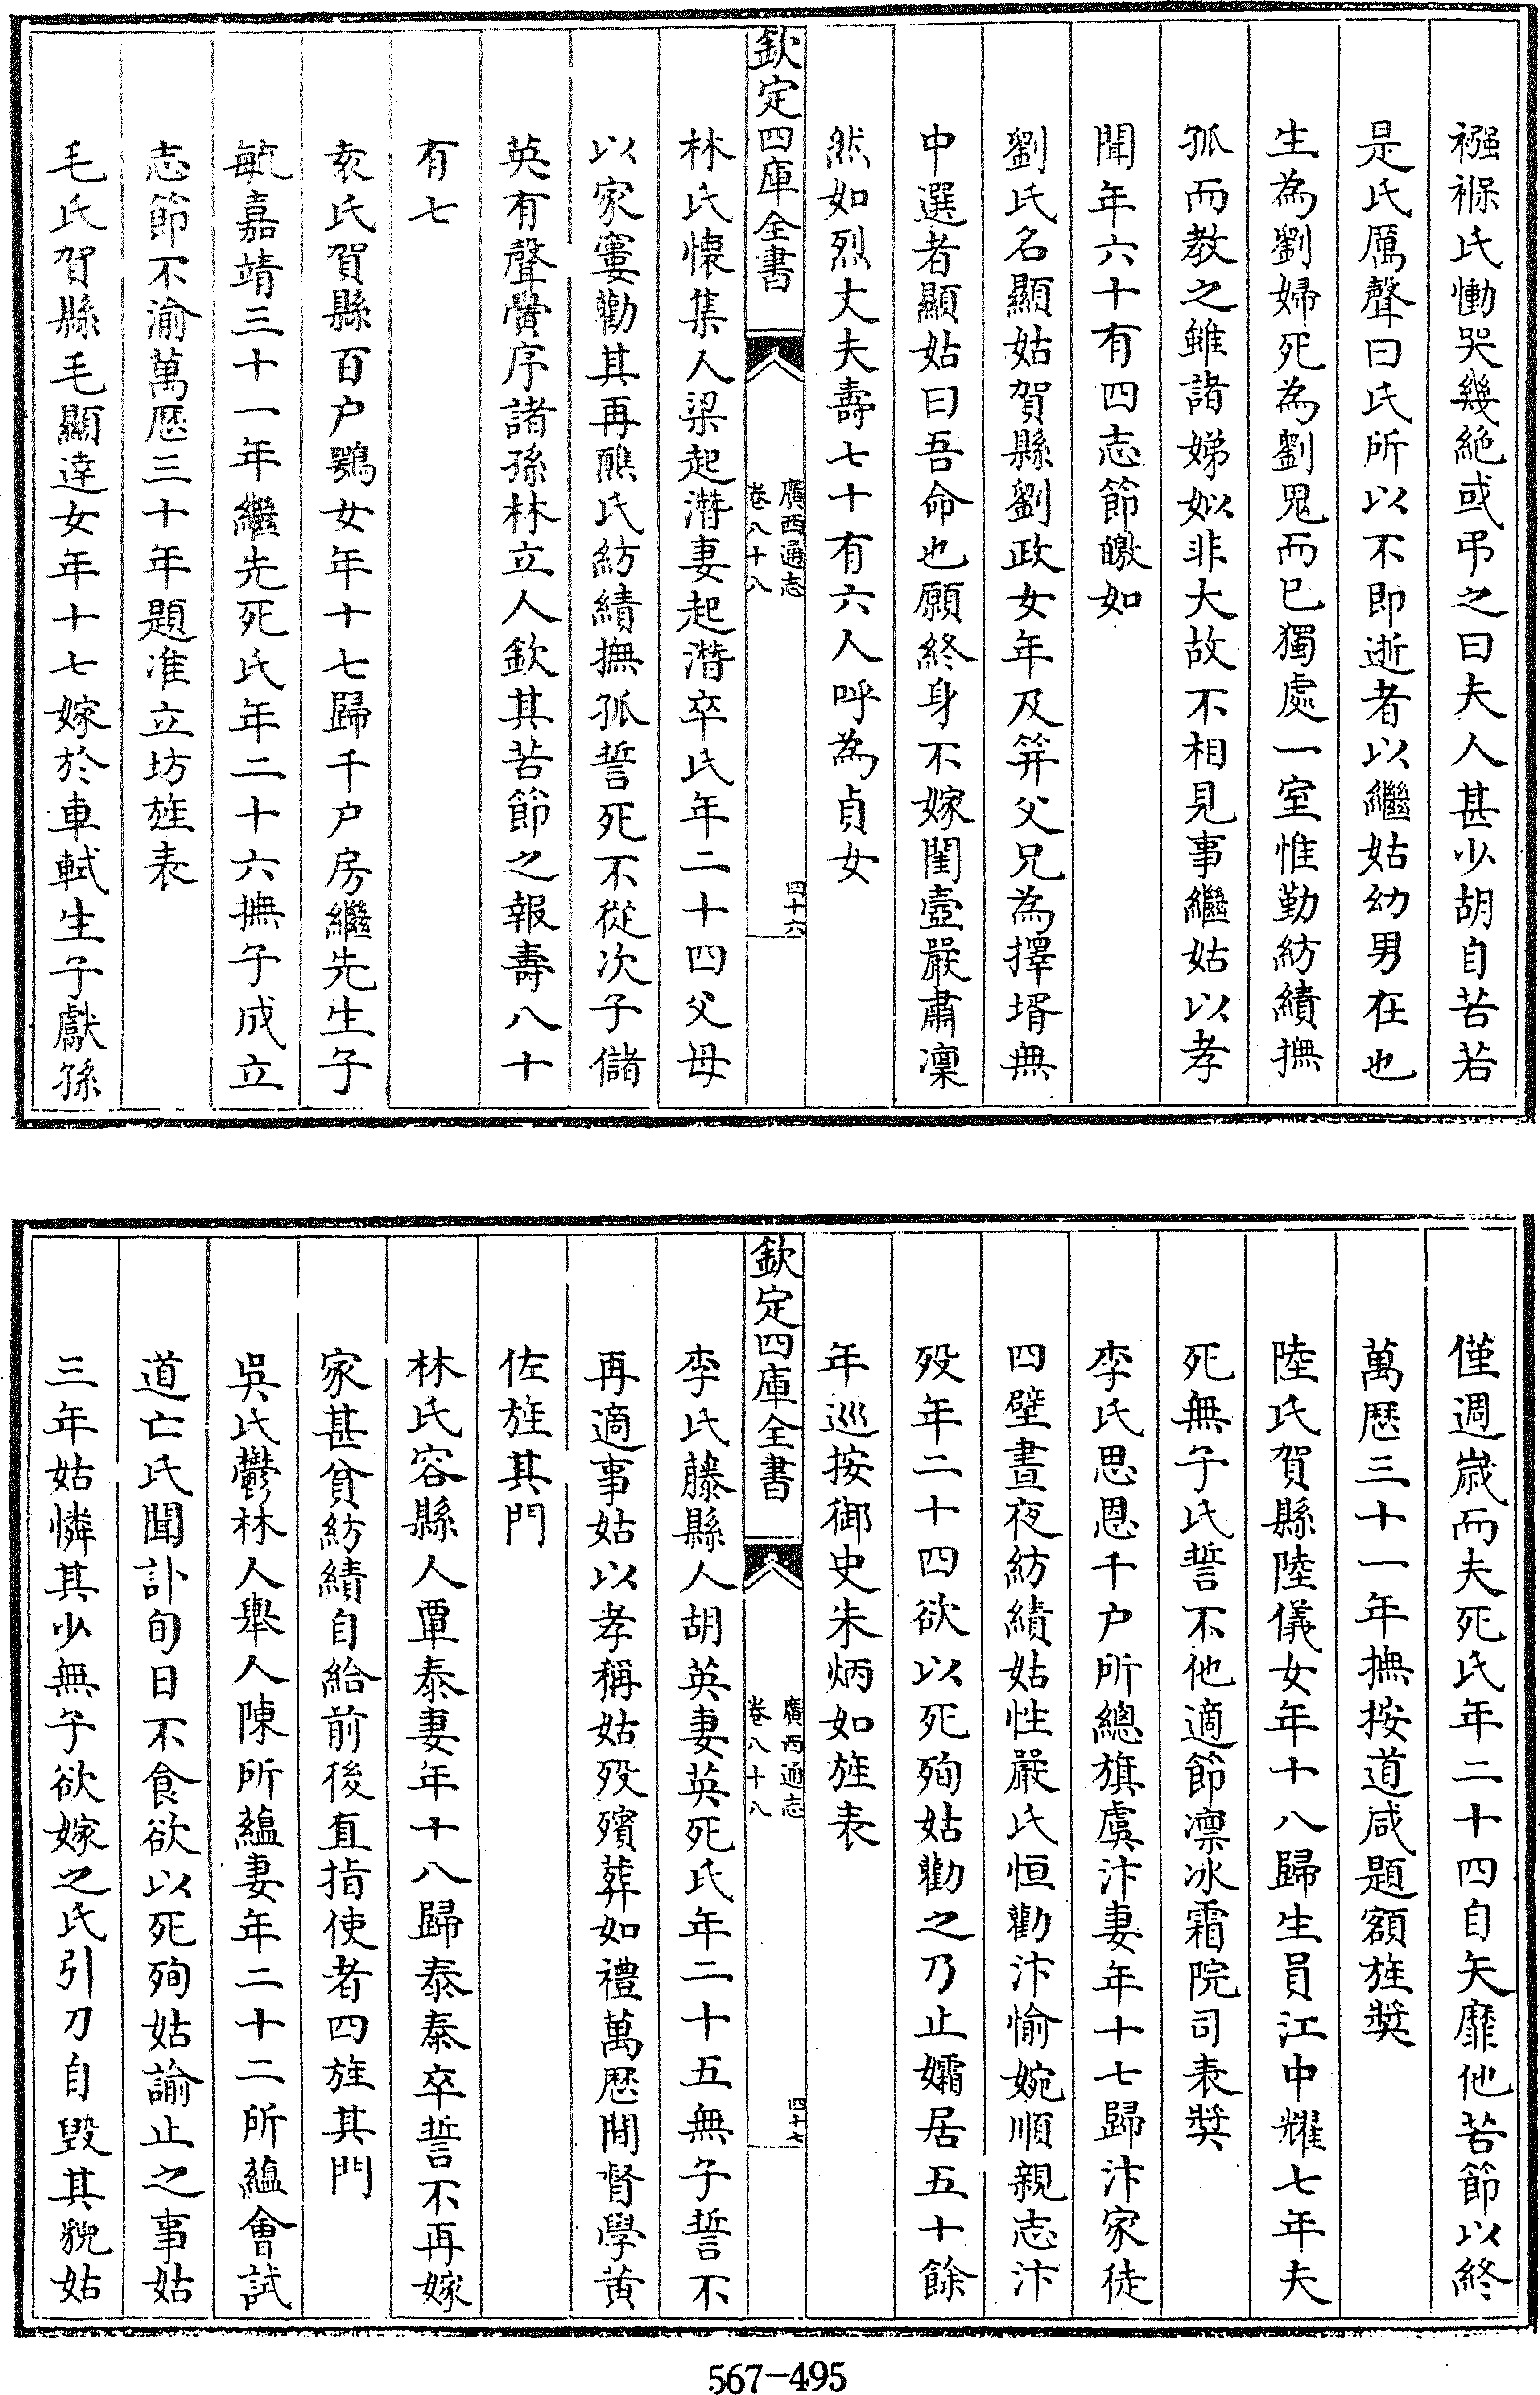 襁褓氏慟哭幾絶或弔之曰夫人甚少胡自苦若
是氏厲聲曰氏所以不即逝者以繼姑幼男在也
生為劉婦死為劉鬼而已獨處一室惟勤紡績撫
孤而教之雖諸娣姒非大故不相見事繼姑以孝
聞年六十有四志節皦如
劉氏名顯姑賀縣劉政女年及笄父兄為擇壻無
中選者顯姑曰吾命也願終身不嫁閨壼嚴肅凜
然如烈丈夫壽七十有六人呼為貞女
欽定四庫全書
廣西通志
卷八十八
四十六
林氏懷集人梁起潛妻起潛卒氏年二十四父母
以家窶勸其再醮氏紡績撫孤誓死不從次子儲
英有聲黌序諸孫林立人欽其苦節之報壽八十
有七
袁氏賀縣百户鶚女年十七歸千户房繼先生子
毓嘉靖三十一年繼先死氏年二十六撫子成立
志節不渝萬歷三十年題准立坊旌表
毛氏賀縣毛顯達女年十七嫁於車軾生子獻孫
僅週歲而夫死氏年二十四自矢靡他苦節以終
萬歷三十一年撫按道咸題額旌獎
陸氏賀縣陸儀女年十八歸生員江中耀七年夫
死無子氏誓不他適節凛冰霜院司表獎
李氏思恩千户所總旗虞汴妻年十七歸汴家徒
四壁晝夜紡績姑性嚴氏恒勸汴愉婉順親志汴
歿年二十四欲以死殉姑勸之乃止孀居五十餘
年巡按御史朱炳如旌表
欽定四庫全書
廣西通志
卷八十八
四十七
李氏藤縣人胡英妻英死氏年二十五無子誓不
再適事姑以孝稱姑歿殯葬如禮萬歷間督學黄
佐旌其門
林氏容縣人覃泰妻年十八歸泰泰卒誓不再嫁
家甚貧紡績自給前後直指使者四旌其門
吳氏鬱林人舉人陳所蘊妻年二十二所蘊會試
道亡氏聞訃旬日不食欲以死殉姑諭止之事姑
三年姑憐其少無子欲嫁之氏引刀自毁其貌姑
567-495